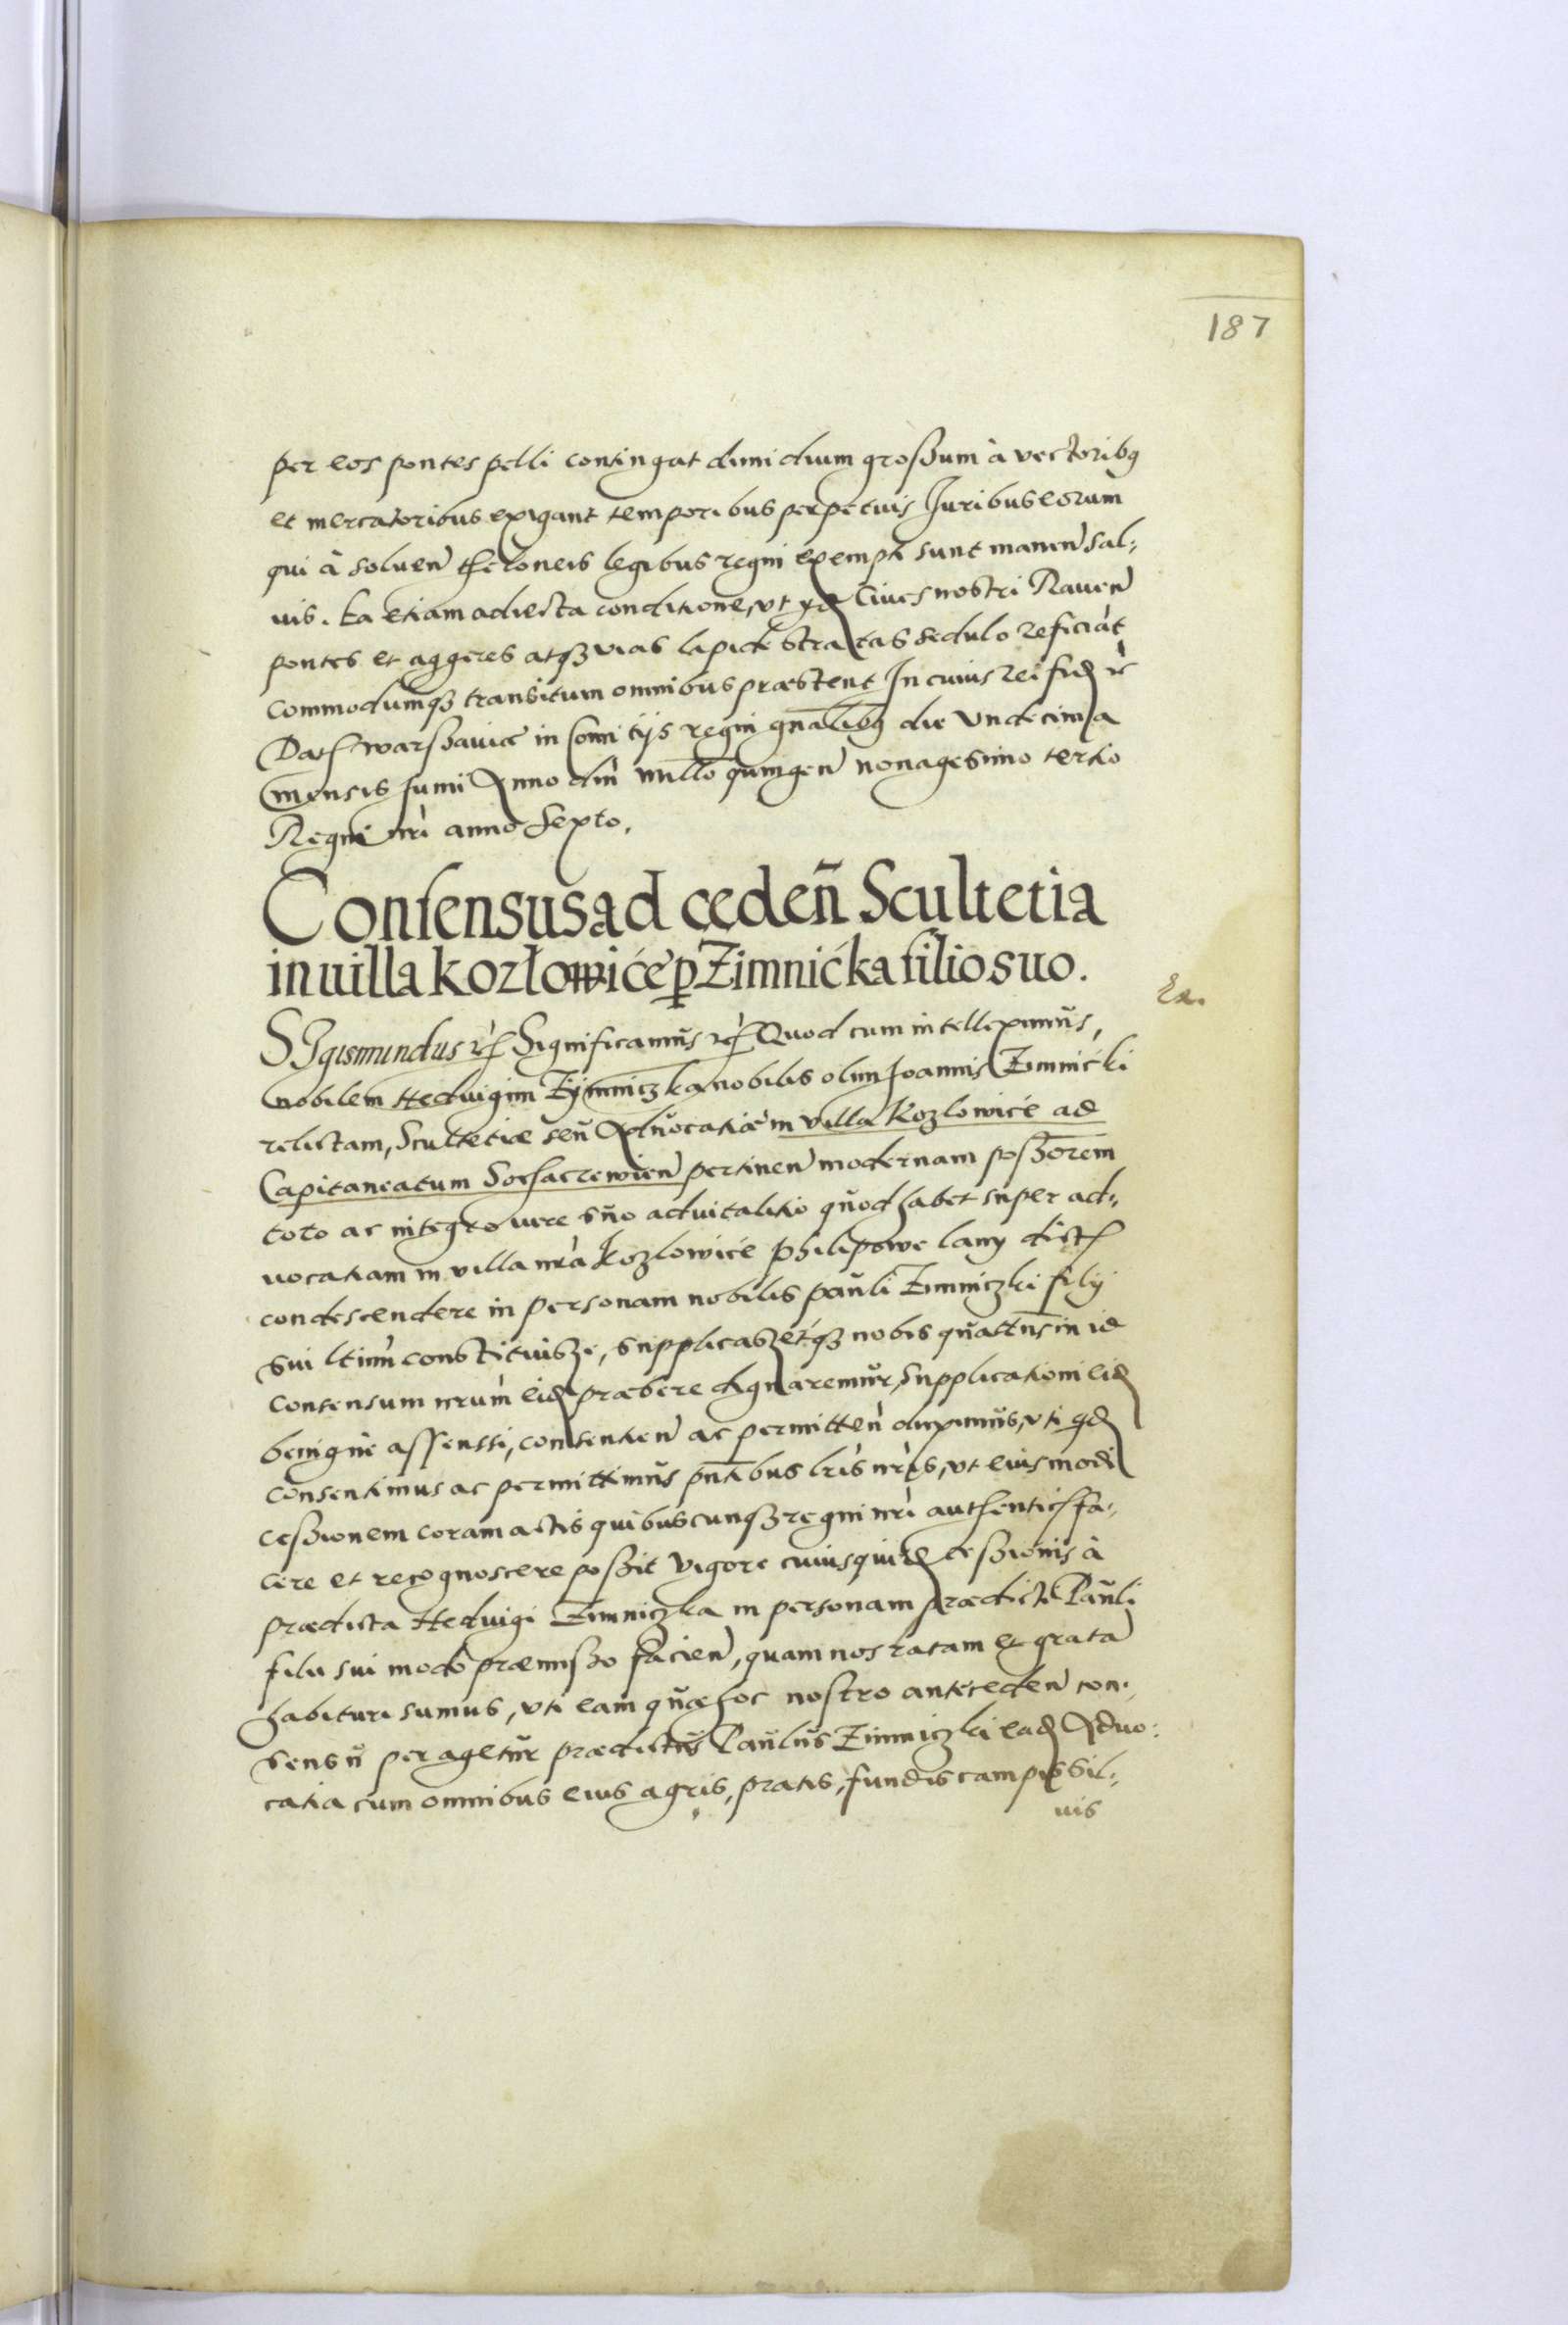 187
per eos pontes pelli contingat dimidium grossum à vectoribq
et mercatoribus exigant temporibus perpetuis Juribus eorum
qui à soluen̄ theloneis legibus regni exempti sunt manen̄ sal:
uis. Ea etiam adiecta conditione, vt Ciues nostri Rauen̄
pontes et aggeres atqꝫ vias lapide stratas sedulo reficiāt
Commodumqꝫ transitum omnibus præstent In cuius rei fidē
Dat Warssauiæ in Comitijs regni gnālibq die vndecima
mensis Junij Anno dnī millō quingen̄ nonagesimo tertio
Regni nrī anno Sexto.
Consensus ad ceden̄ Scultetia
in uilla Kozłowiće p Zimnićka filio suo.
Ex.
SIgismundus Significamus Quod cum intelleximus,
nobilem Heduigim Zymniczka nobilis olim Joannis Zimnićki
relictam, Scultetiæ seu Aduocatiæ in villa Kozlowiće ad
Capitaneatum Sochaczewien̄ pertinen̄ modernam posssorem
toto ac integro iure suo aduitalitio quod habet super ad:
uocatiam in villa nrā Kozlowiće Philipowe lany dict
condescendere in personam nobilis Pauli Zimniczki filij
sui ltim̄ constituisse, supplicassetqꝫ nobis quatens in id
Consensum nrum̄ eid præbere dignaremur, Supplicationi eid
benignè assensi, consentien̄ ac permitten̄ duximus, vti qd
Consentimus ac permittimus pntibus lrīs nrīs, vt eiusmodi
Cessionem coram actis quibuscunqꝫ regni nrī authentic fa:
cere et recognoscere possit vigore cuiusquid cessionis à
prædicta Heduigi Zimniczka in personam prædicti Pauli
filii sui modo præmisso facien̄, quam nos ratam et gratā
habituri sumus, vti eam quæ hoc nostro anteceden̄ con:
sensu peragetur prædictus Paulus Zimniczki ead Aduo:
catia cum omnibus eius agris, pratis, fundis campis sil:
uis